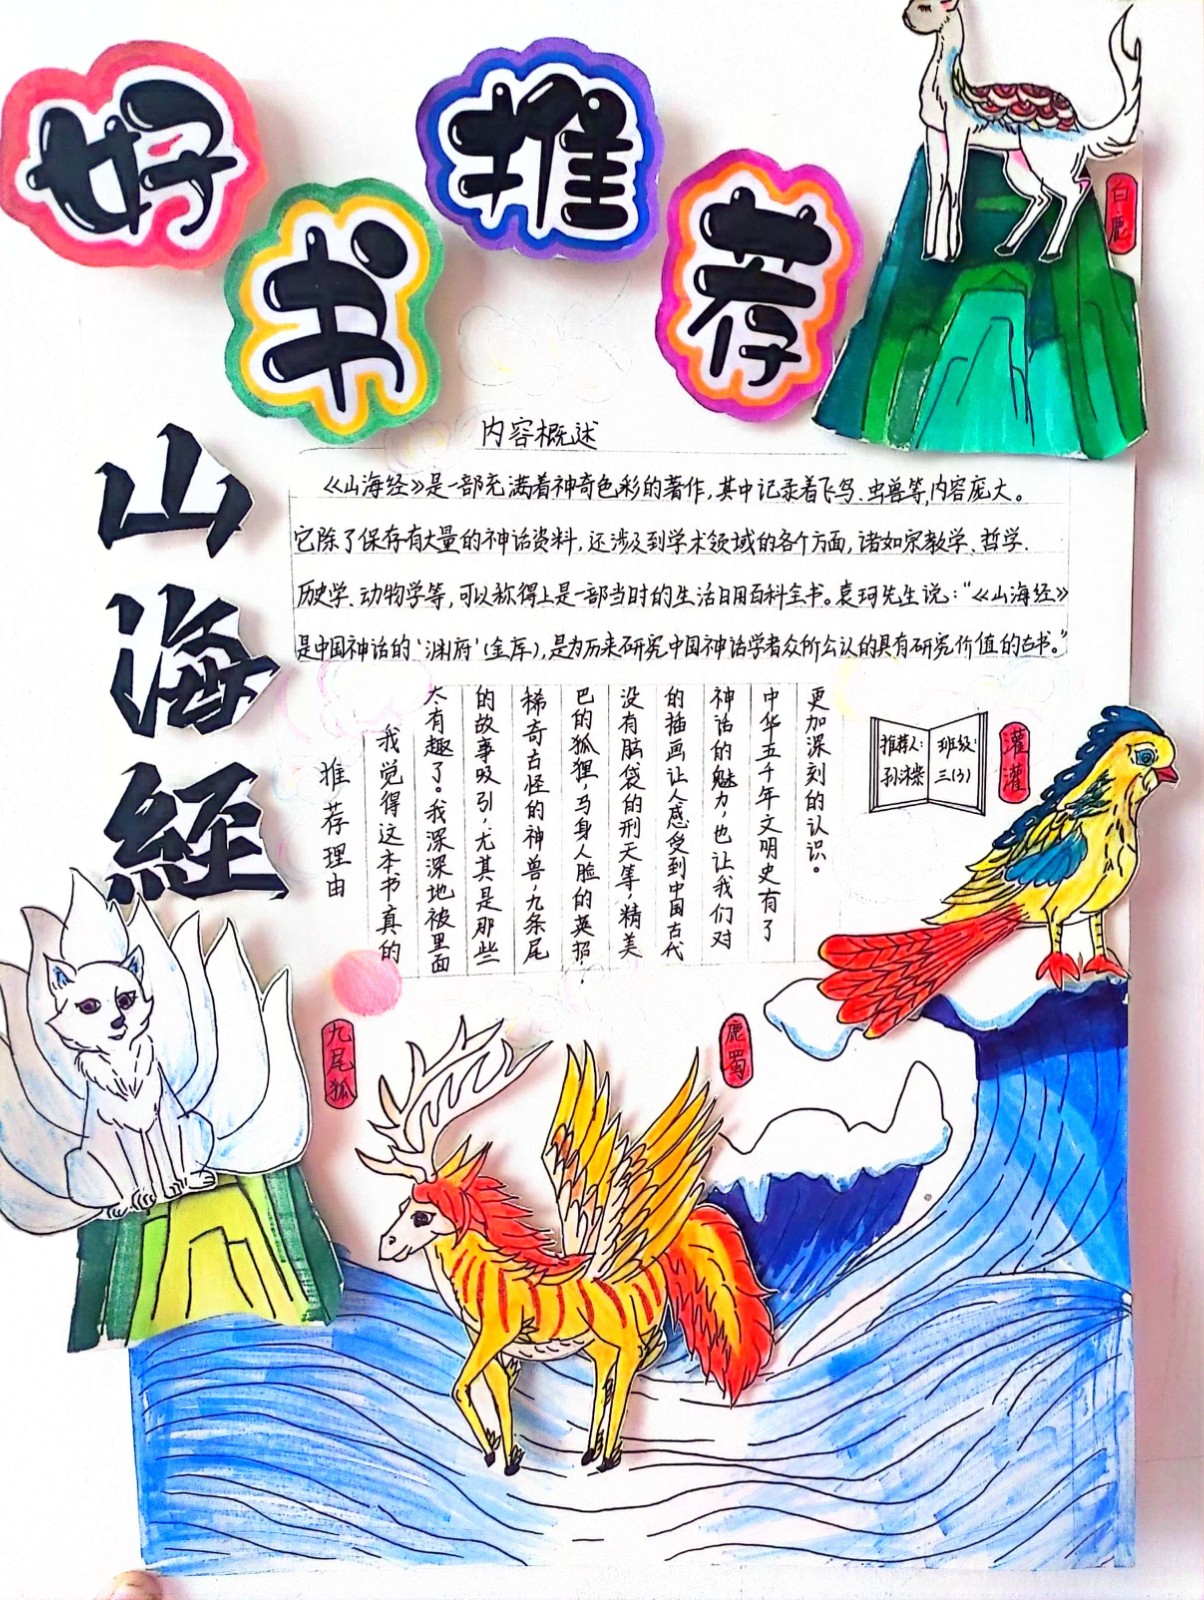 好书推荐
白鹿
山海经
内容概述
《山海经》是一部充满着神奇色彩的著作,其中记录着飞鸟、虫兽等,内容庞大。
它除了保存有大量的神话资料,还涉及到学术领域的各个方面,诸如宗教学、哲学、
历史学、动物学等,可以称得上是一部当时的生活日用百科全书。袁珂先生说:“《山海经》
是中国神话的‘渊府’(金库),是为历来研究中国神话学者众所公认的具有研究价值的古书。”
推荐理由
我觉得这本书真的
太有趣了。我深深地被里面
的故事吸引,尤其是那些
稀奇古怪的神兽,九条尾
巴的狐狸,马身人脸的英招,
没有脑袋的刑天等,精美
的插画让人感受到中国古代
神话的魅力,也让我们对
中华五千年文明史有了
更加深刻的认识。
推荐人:
班级:
三(3)
灌灌
九尾狐
鹿蜀